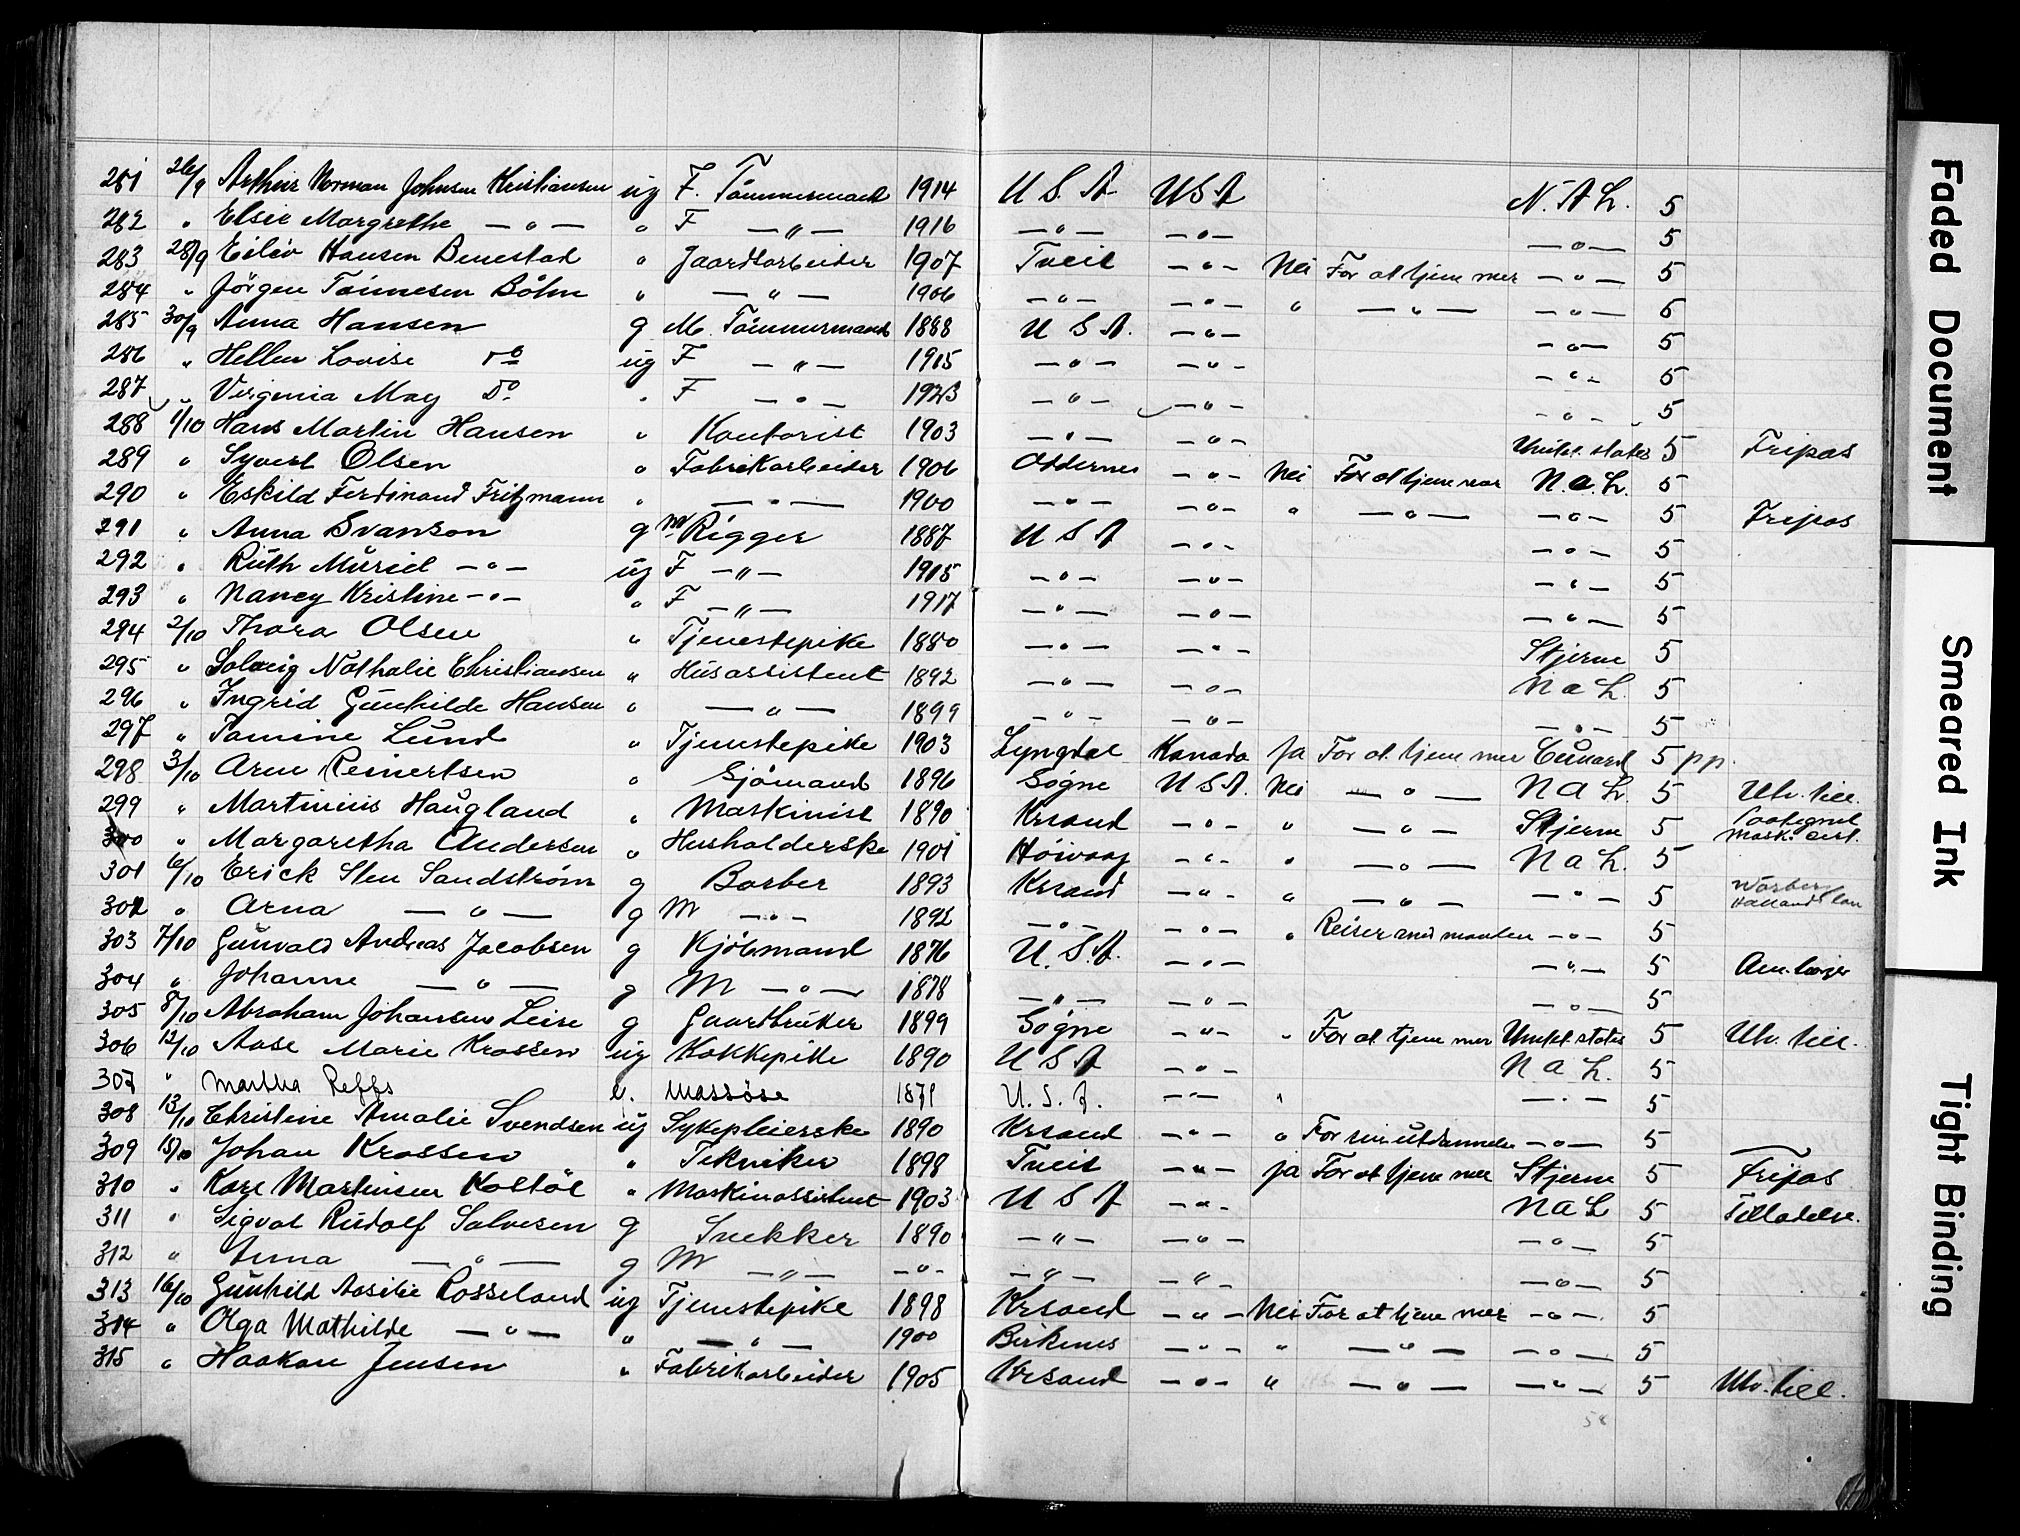 281 26/9 Arthur Norman Johnsen Kristiansen ug F. Tømmermand 1914 U S. A USA N. A L. 5
282 " Elsie Margrethe — " — " F — " — 1916 — " — — " — — " — 5
283 28/9 Eilev Hansen Benestad " Gaardsarbeider 1907 Tveit — " — Nei For at tjene mer — " — 5
284 " Jörgen Tönnesen Böhn " — " — 1906 — " — — " — " — " — — " — 6
285 30/9 Anna Hansen g M. Tömmermand 1888 U S A. — " — — " — 5
286 " Hellen Lovise do ug F — " — 1915 — " — — " — — " — 5
287 " Virginia May Do " F — " — 1923 — " — — " — — " — 5
288 1/10 Hans Martin Hansen " Kontorist 1903 — " — — " — Unitet. states 5 Fripas
289 " Syvert Olsen " Fabrikarbeider 1906 Oddernes — " — Nei For at tjene mer N. a. L. 5
290 " Eskild Ferdinand Fritzmann " — " — 1900 — " — — " — " — " — — " — 5 Fripas
291 " Anna Svanson g M. Rigger 1887 U S A — " — — " — 5
292 " Ruth Muriel — " — ug F — " — 1915 — " — — " — — " — 5
293 " Nancy Kristine — " — " F — " — 1917 — " — — " — — " — 5
294 2/10 Thora Olsen " Tjenestepike 1880 — " — — " — Stjerne 5
295 " Solveig Nathalie Christiansen " Husassistent 1892 — " — — " — N a L. 5
296 " Ingrid Gunhilde Hansen " — " — 1899 — " — — " — — " — 5
297 " Tomine Lund " Tjenestepike 1903 Lyngdal Kanada ja For at tjene mer Cunard 5 pp.
298 3/10 Arne Reinertsen " Sjömand 1896 Søgne U S A. Nei — " — N A L. 5 Utv. till.
299 " Martinius Haugland " Maskinist 1890 Krsand — " — " — " — Stjerne 5 Paategnet mask. cert.
300 " Margaretha Andersen " Husholderske 1901 Höivaag — " — " — " — N a L. 5
301 6/10 Erick Sten Sandström g Barber 1893 Krsand — " — " — " — — " — 5 Warberg Halland Län
302 " Arna — " — g M — " — 1892 — " — — " — " Reiser med manden — " — 5
303 7/10 Gunvald Andreas Jacobsen g Kjöbmand 1876 U. S. A. — " — — " — 5 Am. borger
304 " Johanne — " — g M — " — 1878 — " — — " — — " — 5
305 8/10 Abraham Johansen Leire g Gaardbruker 1899 Søgne — " — " For at tjene mer Unitet. states 5 Utv. till.
306 12/10 Aase Marie Krossen ug Kokkepike 1890 U S A — " — N a L. 5
307 " Martha Reffs e. Massöse 1871 U. S. A. — " — " — " — 5
308 13/10 Christine Amalie Svendsen ug Sykepleierske 1890 Krsand — " — " For sin utdannelse — " — 5
309 15/10 Johan Krossen " Tekniker 1898 Tveit — " — ja For at tjene mer Stjerne 5 Fripas
310 " Kare Martinsen Koltöl " Maskinassistent 1903 U S A — " — N a L 5 Tilladelse.
311 " Sigval Rudolf Salvesen g Snekker 1890 — " — — " — — " — 5
312 " Anna — " — g M — " — — " — — " — — " — — " — 5
313 16/10 Gunhild Aasilie Rosseland ug Tjenestepike 1898 Krsand — " — Nei For at tjene mer — " — 5
314 " Olga Mathilde — " — " — " — 1900 Birkenes — " — " — " — — " — 5
315 " Haakon Jensen " Fabrikarbeider 1905 Krsand — " — " — " — — " — 5 Utv. till.
58
Faded Document
Smeared Ink
Tight Binding